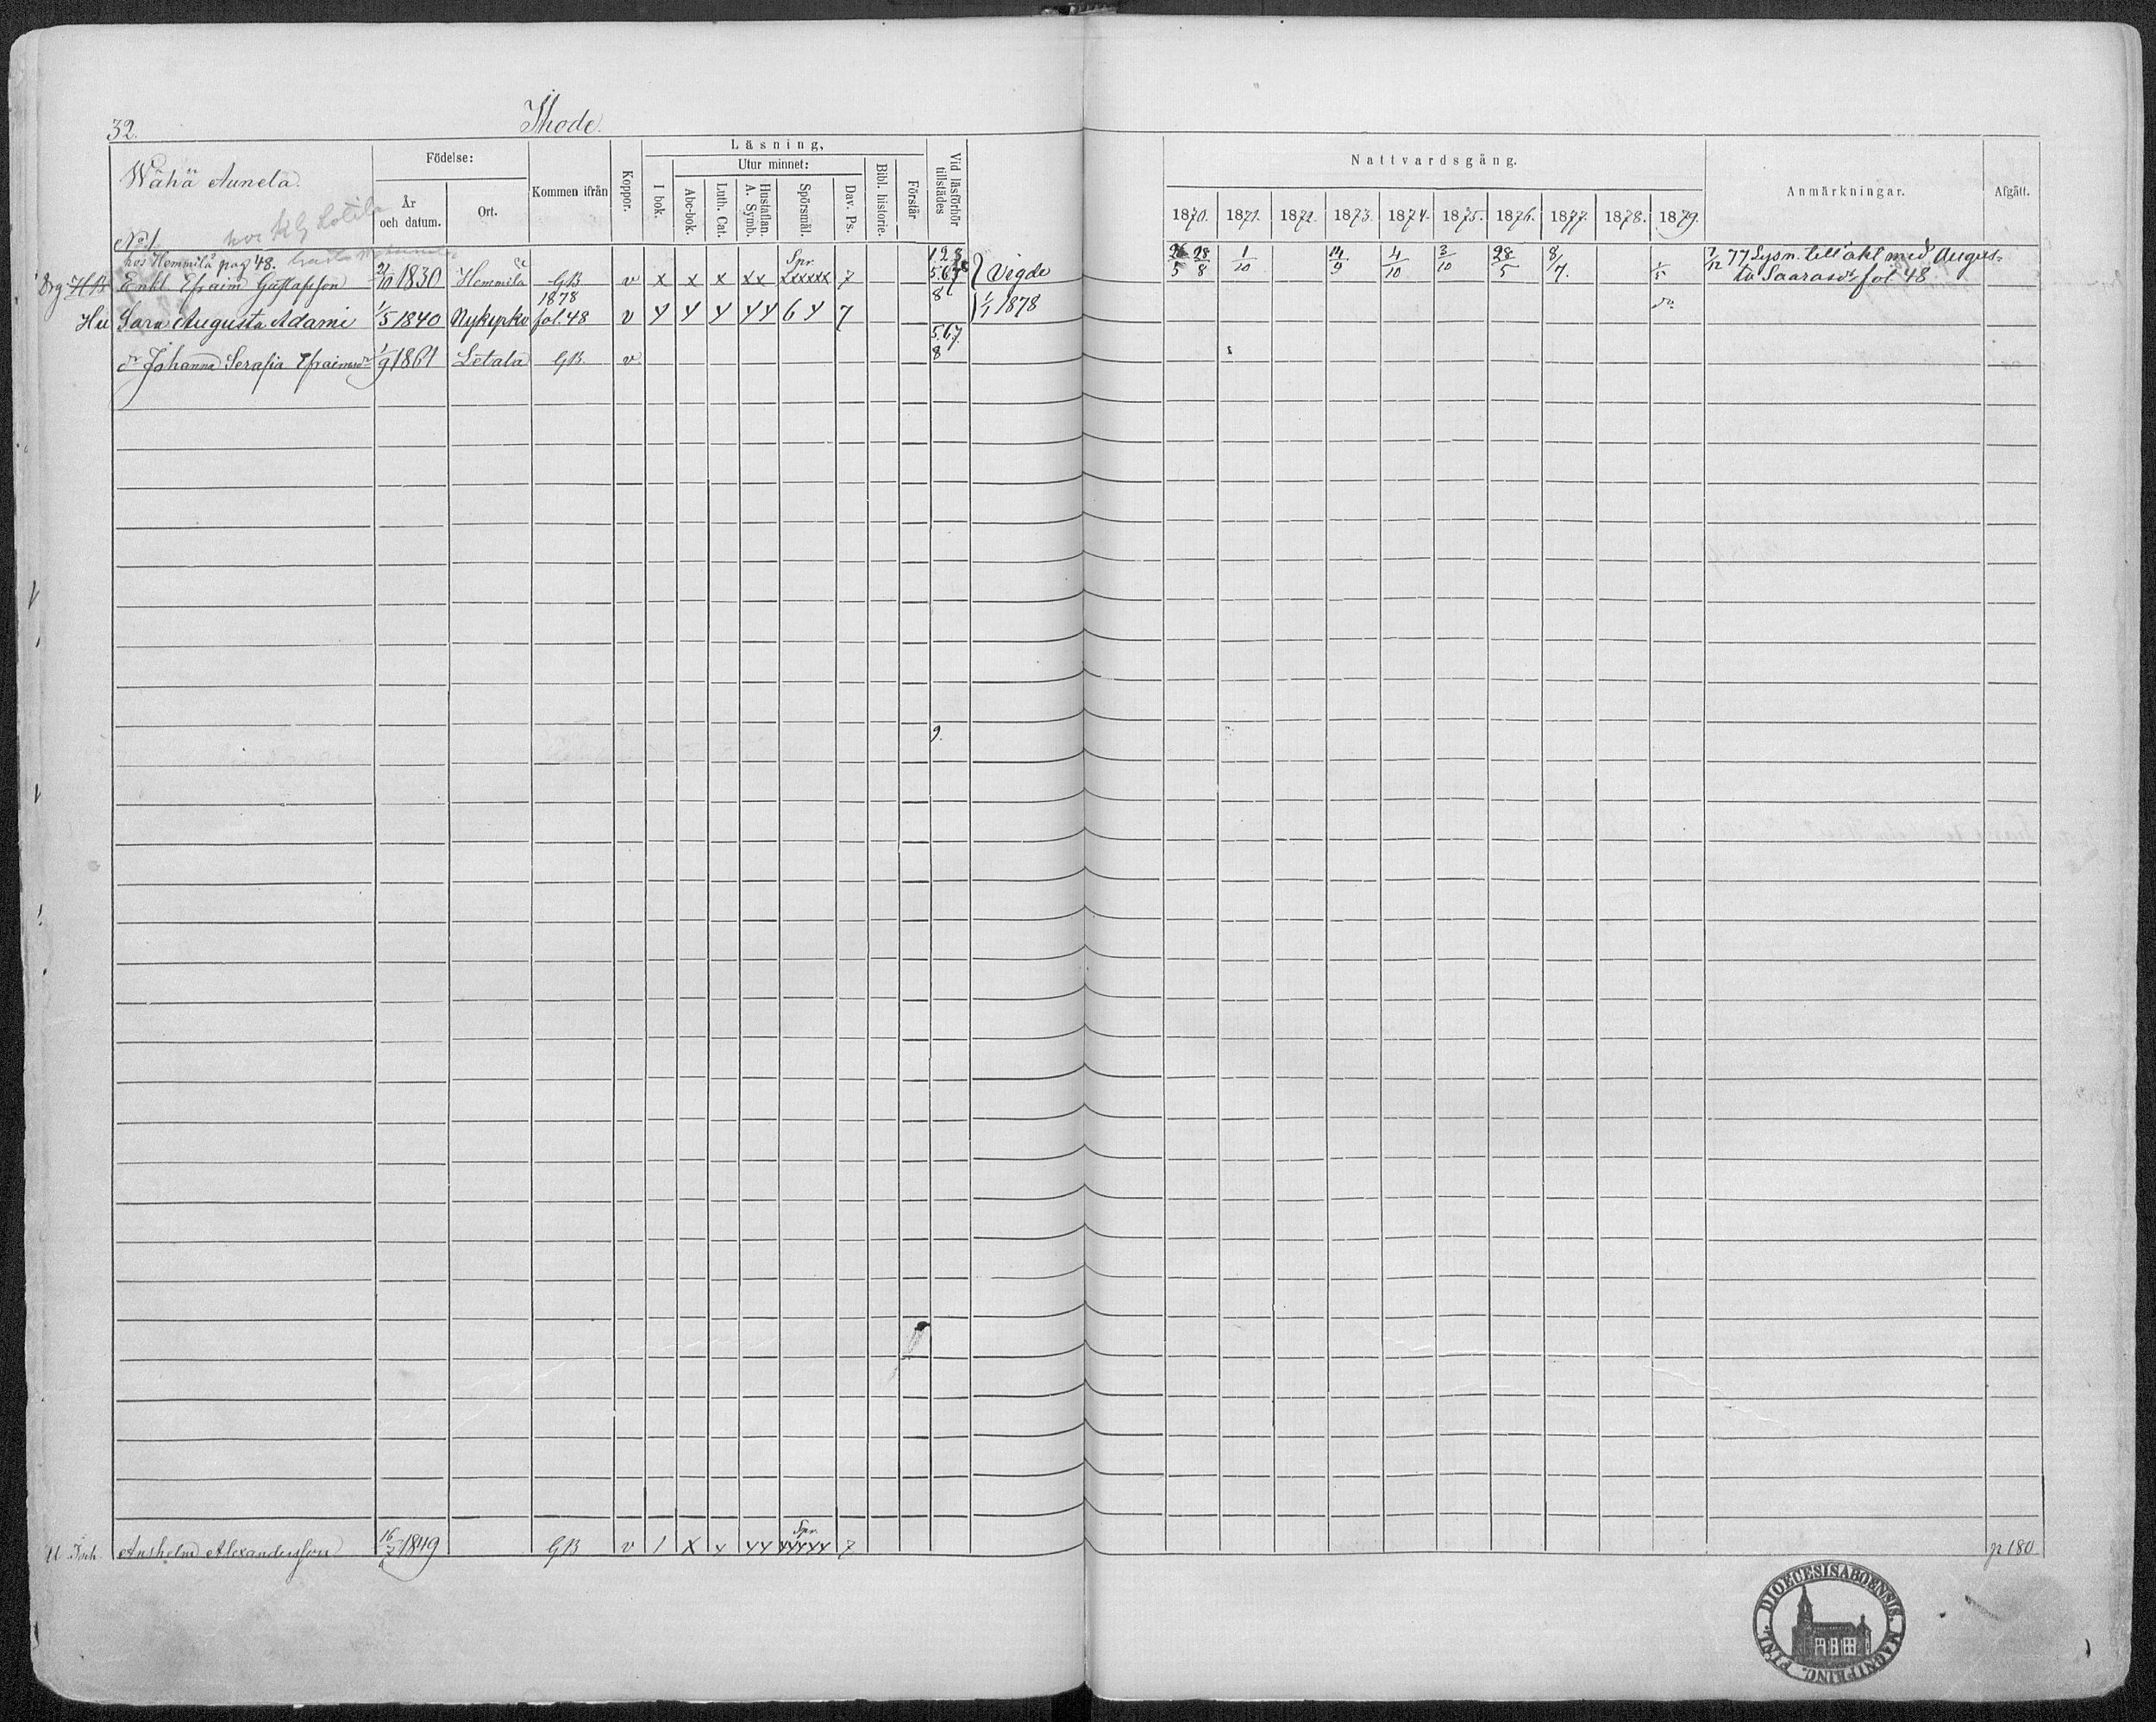 32.
Ihode.
Wähä Aunela.
No 1
Födelse:
År och datum.
Ort.
Kommen ifrån
Koppor.
Läsning,
I bok.
Utur minnet:
Abc-bok.
Luth. Cat.
Hustaflan. A. Symb.
Spörsmål.
Dav. Ps.
Bibl. historie.
Förstår
Vid läsförhör tillstädes
Nattvardsgång.
1870. 1871. 1872. 1873. 1874. 1875. 1876. 1877. 1878. 1879.
Anmärkningar.
Afgått.
hos Hemmilä pag 48.
Enkl. Efraim Gustafsson 21/10 1830 Hemmilä GB v x x x xx Spr. xxxxx 7 Vigde 28/8 1/10 14/9 4/10 3/10 28/5 8/7 1/5 7/12 77 Lysn. till äkt. med Augus-
ta Saarasdr fol 48
Hu Sara Augusta Adami 1/5 1840 Nykyrko 1878 fol. 48 v 7 8 1/1 1878 do
dr Johanna Serafia Efraimsdr 1/9 1861 Letala GB. v 5.6.7. 8
9.
Anshelm Alexandersson 1849 GB v 1 x Spr. 7 p 180
DIOECESIS ABOENSIS. MAGNI PRINC. FINL.